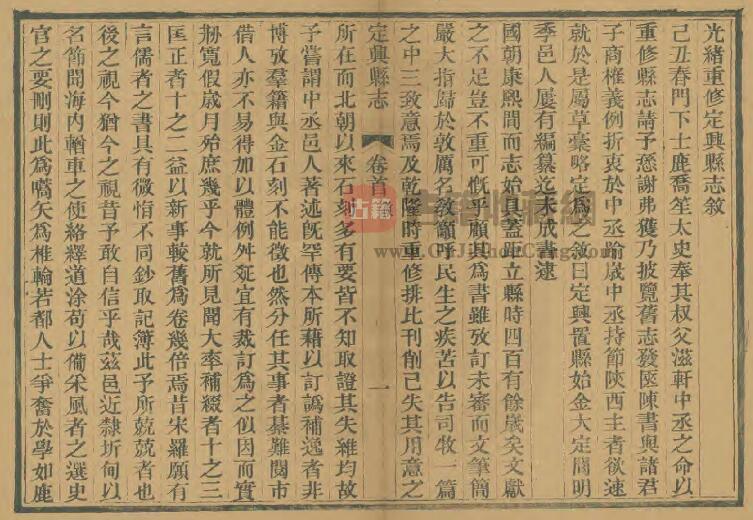 光緒重修定興縣志敘
己丑春門下士鹿喬笙太史奉其叔父滋軒中丞之命以
重修縣志請予愻謝弗獲乃披覽舊志發篋陳書與諸君
子商榷義例折衷於中丞踰歲中丞持節陝西主者欲速
就於是屬草稾略定爲之敘曰定興置縣始金大定間明
季邑人屢有編纂迄未成書逮
國朝康熙間而志始具蓋距立縣時四百有餘歲矣文獻
之不足豈不重可慨乎顧其爲書雖攷訂未審而文筆簡
嚴大指歸於敦厲名教籲呼民生之疾苦以告司牧一篇
之中三致意焉及乾隆時重修排比刊削已失其用意之
定興縣志
卷首
一
所在而北朝以來石刻多有要皆不知取證其失維均故
予嘗謂中丞邑人著述旣罕傳本所藉以訂譌補逸者非
博攷羣籍與金石刻不能徵也然分任其事者綦難閱市
借人亦不易得加以體例舛延宜有裁訂爲之似因而實
剏寬假歲月殆庶幾乎今就所見聞大率補綴者十之三
匡正者十之二益以新事較舊爲卷幾倍焉昔宋羅願有
言儒者之書具有微恉不同鈔取記簿此予所兢兢者也
後之視今猶今之視昔予敢自信乎哉茲邑近隸折甸以
名節聞海内輶車之使絡繹道涂苟以備采風者之選史
官之要刪則此爲嚆矢爲椎輪若都人士爭奮於學如鹿
古籍